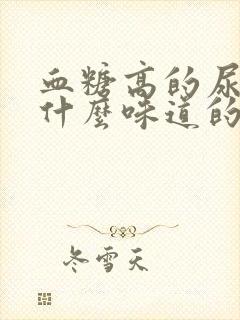 血糖高的尿
什麼味道的
冬雪天